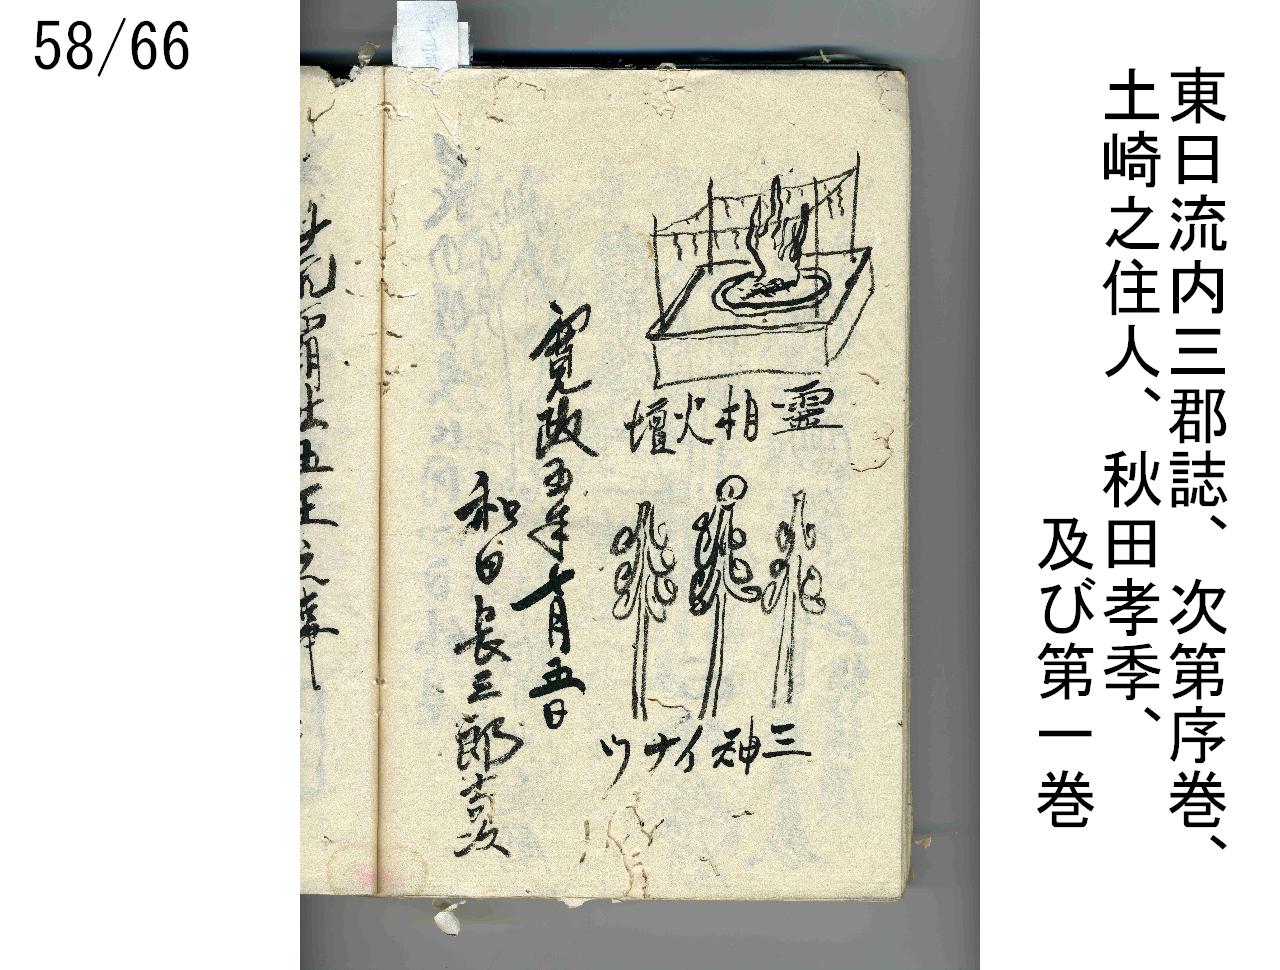 58/66
東日流内三郡誌、次第序巻、
土崎之住人、秋田孝季、
及び第一巻
霊相火壇
三神イナウ
寛政五年七月五日
和田長三郎吉次
五王之